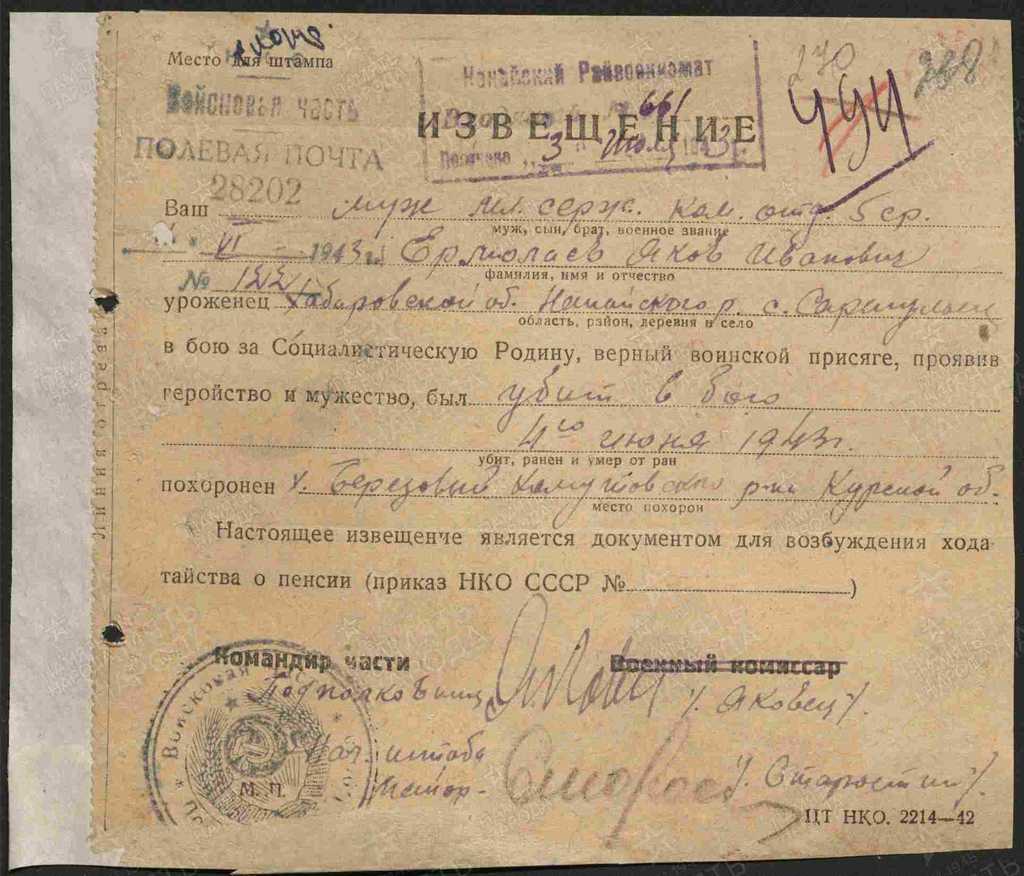 копия
Место для штампа
Войсковая часть
ПОЛЕВАЯ ПОЧТА
28202
VI 1943 г.
№ 122
Нанайский Райвоенкомат
№ 661
3
270
268
494
ИЗВЕЩЕНИЕ
Ваш муж мл. серж. ком. отд. 5 ср.
муж, сын, брат, военное звание
Ермолаев Яков Иванович
фамилия, имя и отчество
уроженец Хабаровской об. Нанайского р. с.
область, район, деревня и село
в бою за Социалистическую Родину, верный воинской присяге, проявив
геройство и мужество, был убит в бою
4го июня 1943 г.
убит, ранен и умер от ран
похоронен х. Березовый Хомутовского р-на Курской об.
место похорон
Настоящее извещенче является документом для возбуждения хода
тайства о пенсии (приказ НКО СССР № )
Командир части
Военный комиссар
Подполковник / Яковец /.
Нач. штаба
Майор - / Старостин /.
Войсковая
М. П.
ЦТ НКО. 2214—42
Линия отреза